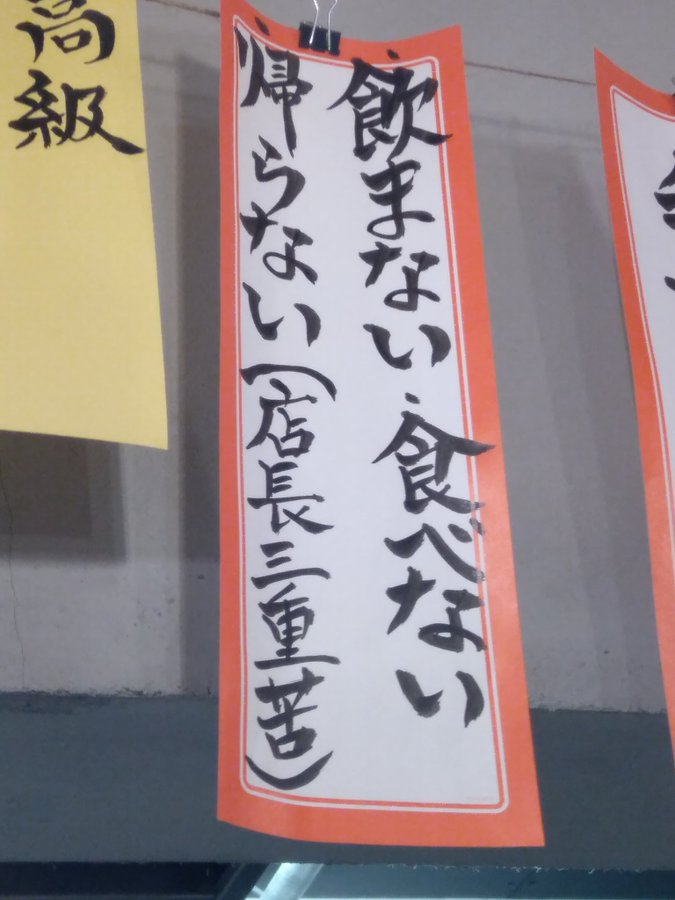 ・飲まない・食べない
・帰らない(店長三重苦)
高級